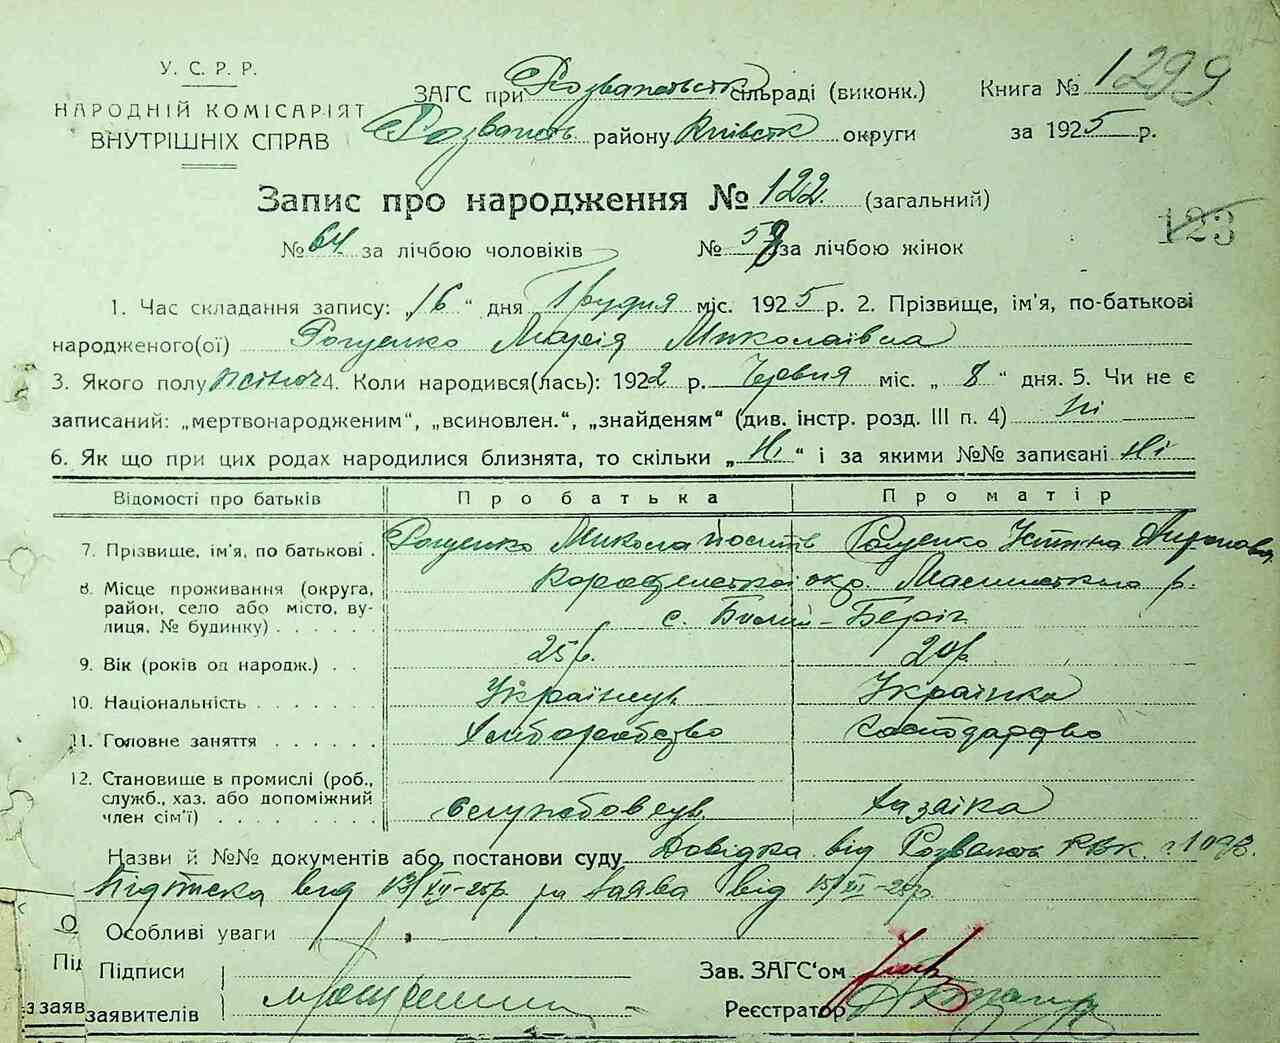 У. С. Р. Р.
НАРОДНІЙ КОМІСАРІЯТ
ВНУТРІШНІХ СПРАВ
ЗАГС при сільраді (виконк.)
району Київськ округи
Книга № 1299
за 1925 р.
Запис про народження № 122. (загальний)
123
№ 64 за лічбою чоловіків № 58 за лічбою жінок
1. Час складання запису: „16“ дня Грудня міс. 1925 р. 2. Прізвище, ім'я, по-батькові
народженого(ої) Марія Миколаівна
3. Якого полу жіноч 4. Коли народився(лась): 1922 р. Червня міс. „8“ дня. 5. Чи не є
записаний: „мертвонародженим“, „всиновлен.“, „знайденям“ (див. інстр. розд. III п. 4) Ні
6. Як що при цих родах народилися близнята, то скільки „Ні“ і за якими №№ записані Ні
Відомості про батьків Про батька Про матір
7. Прізвище, ім'я, по батькові . Микола Устина
8. Місце проживання (округа,
район, село або місто, ву-
лиця, № будинку) . . . . . .
окр. р.
с. Беріг
9. Вік (років од народж.) . . 25 р. 20 р.
10. Національність . . . . . . . Українець Українка
11. Головне заняття . . . . . . Хліборобство Господарство
12. Становище в промислі (роб.,
служб., хаз. або допоміжний
член сім'ї) . . . . . . . . . службовець хазяїка
Назви й №№ документів або постанови суду Довідка від РВК. 1093.
від 13/XII-25р. та Заява від 15/XII-25р.
Особливі уваги
Підписи
заявителів
Зав. ЗАГС'ом
Реєстратор
О
Під
з заяв